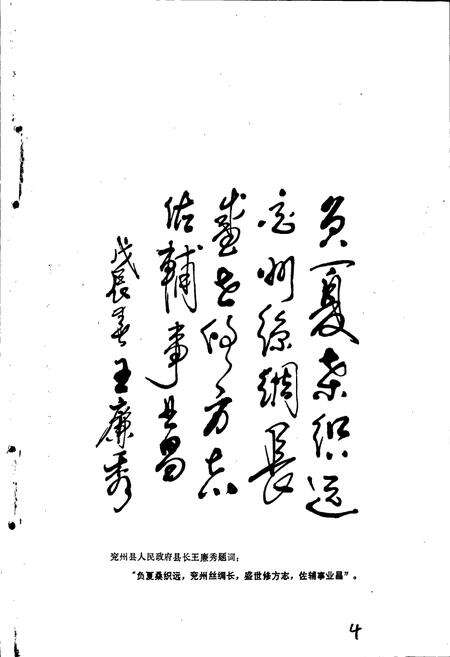 负夏桑织远
兖州丝绸长
盛世修方志
佐辅事业昌
戊辰春王廉秀
兖州县人民政府县长王廉秀题词：
“负夏桑织远，兖州丝绸长，盛世修方志，佐辅事业昌”。
4